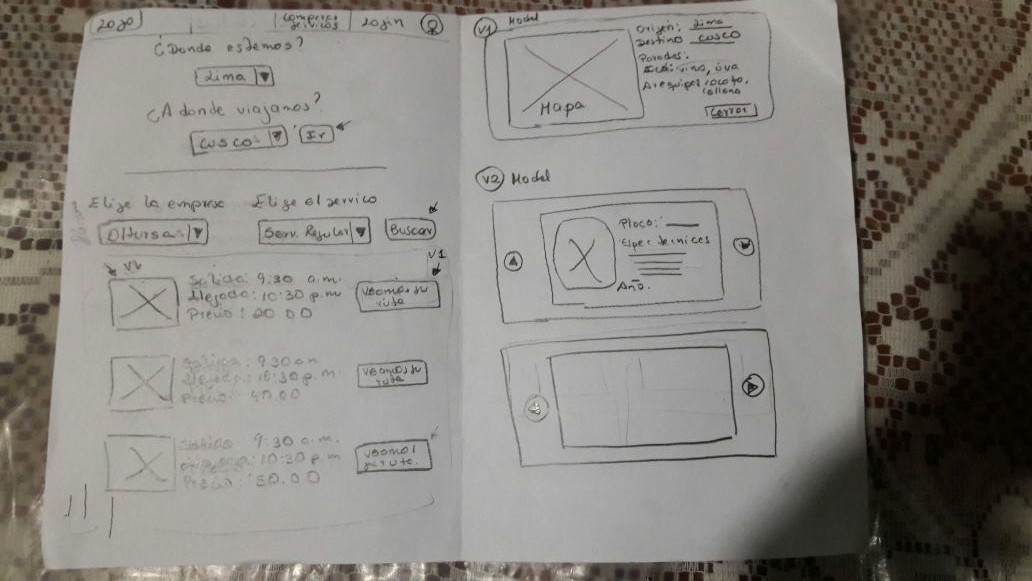 Logo
Login
¿Donde estemos?
Lima
¿A donde viajamos?
Cusco
Ir
Elije la empresa
Elije el servico
Oltursa
Serv. Regular
Buscar
V1
Salida: 9:30 a.m.
llegada: 10:30 p.m
Precio: 20 00
Veamos su
ruta
Salida: 9:30 am.
llegada: 10:30 p.m.
Precio: 40.00
Veamos su
ruta
Salida 9:30 a.m.
10:30 p m
Precio: 50.00
Veamos
su ruta.
V1 Model
Mapa
Origen: Lima
Destino Cusco
Paradas:
vino, uva
Arequipa: rocoto,
Cerrar
V2 Model
Placa:
Espec tecnicas
Año.